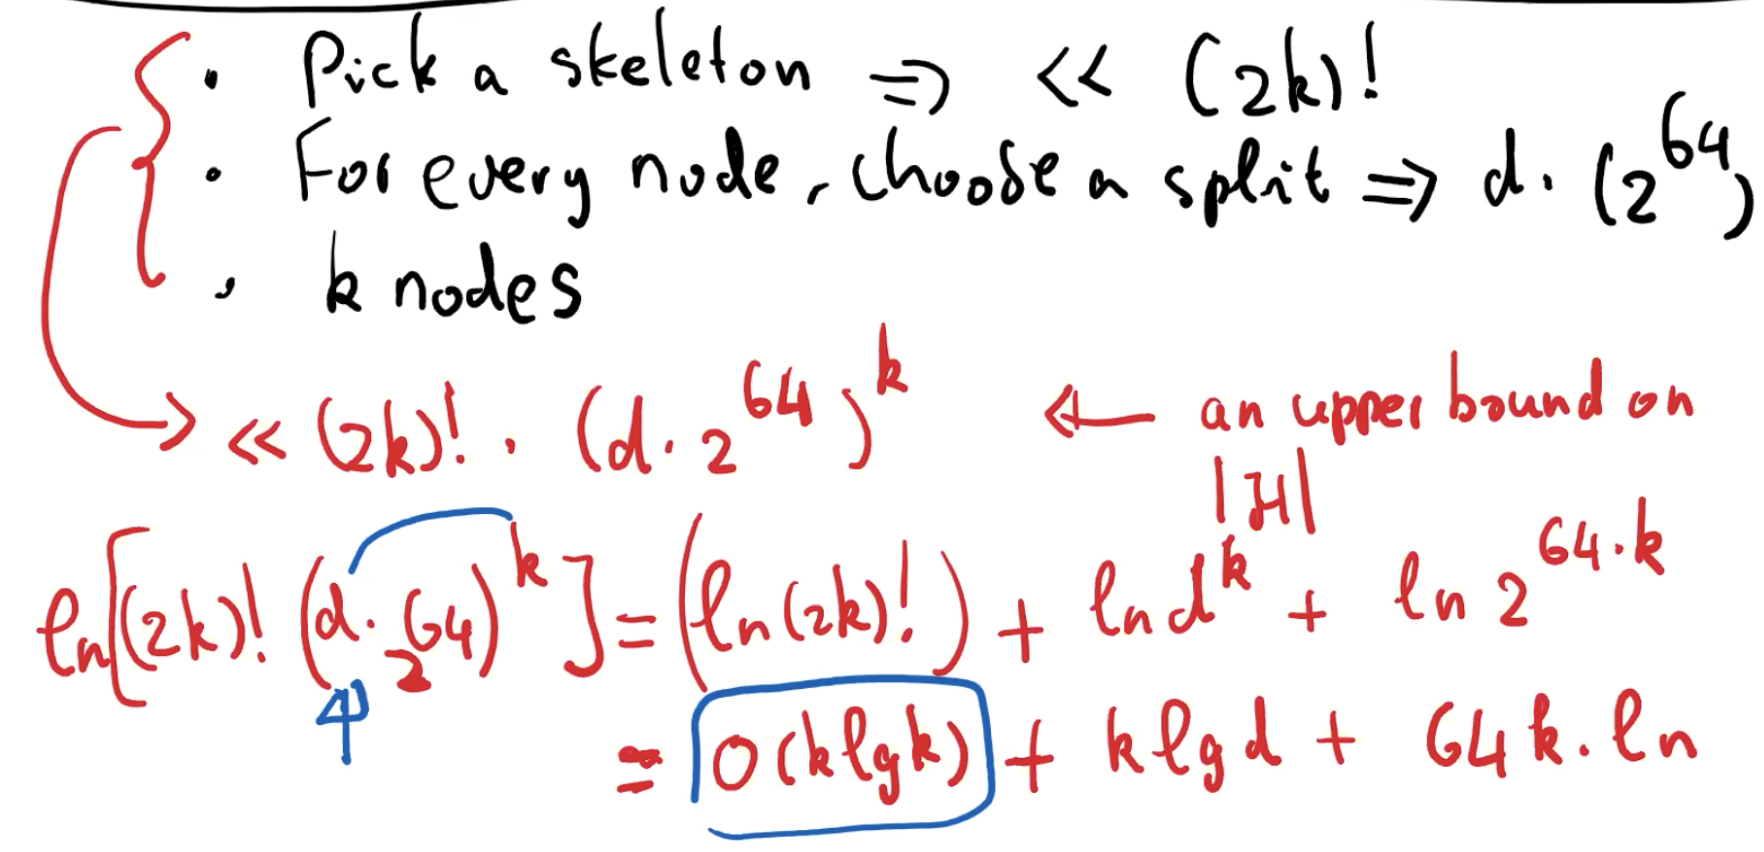 • Pick a skeleton ⇒ << (2k)!
• For every node, choose a split ⇒ d. (2^64)
• k nodes
<< (2k)! . (d. 2^64)^k ← an upper bound on
|H|
ln[(2k)! (d. 2^64)^k] = (ln (2k)!) + ln d^k + ln 2^64.k
= O(k lg k) + k lg d + 64 k. ln